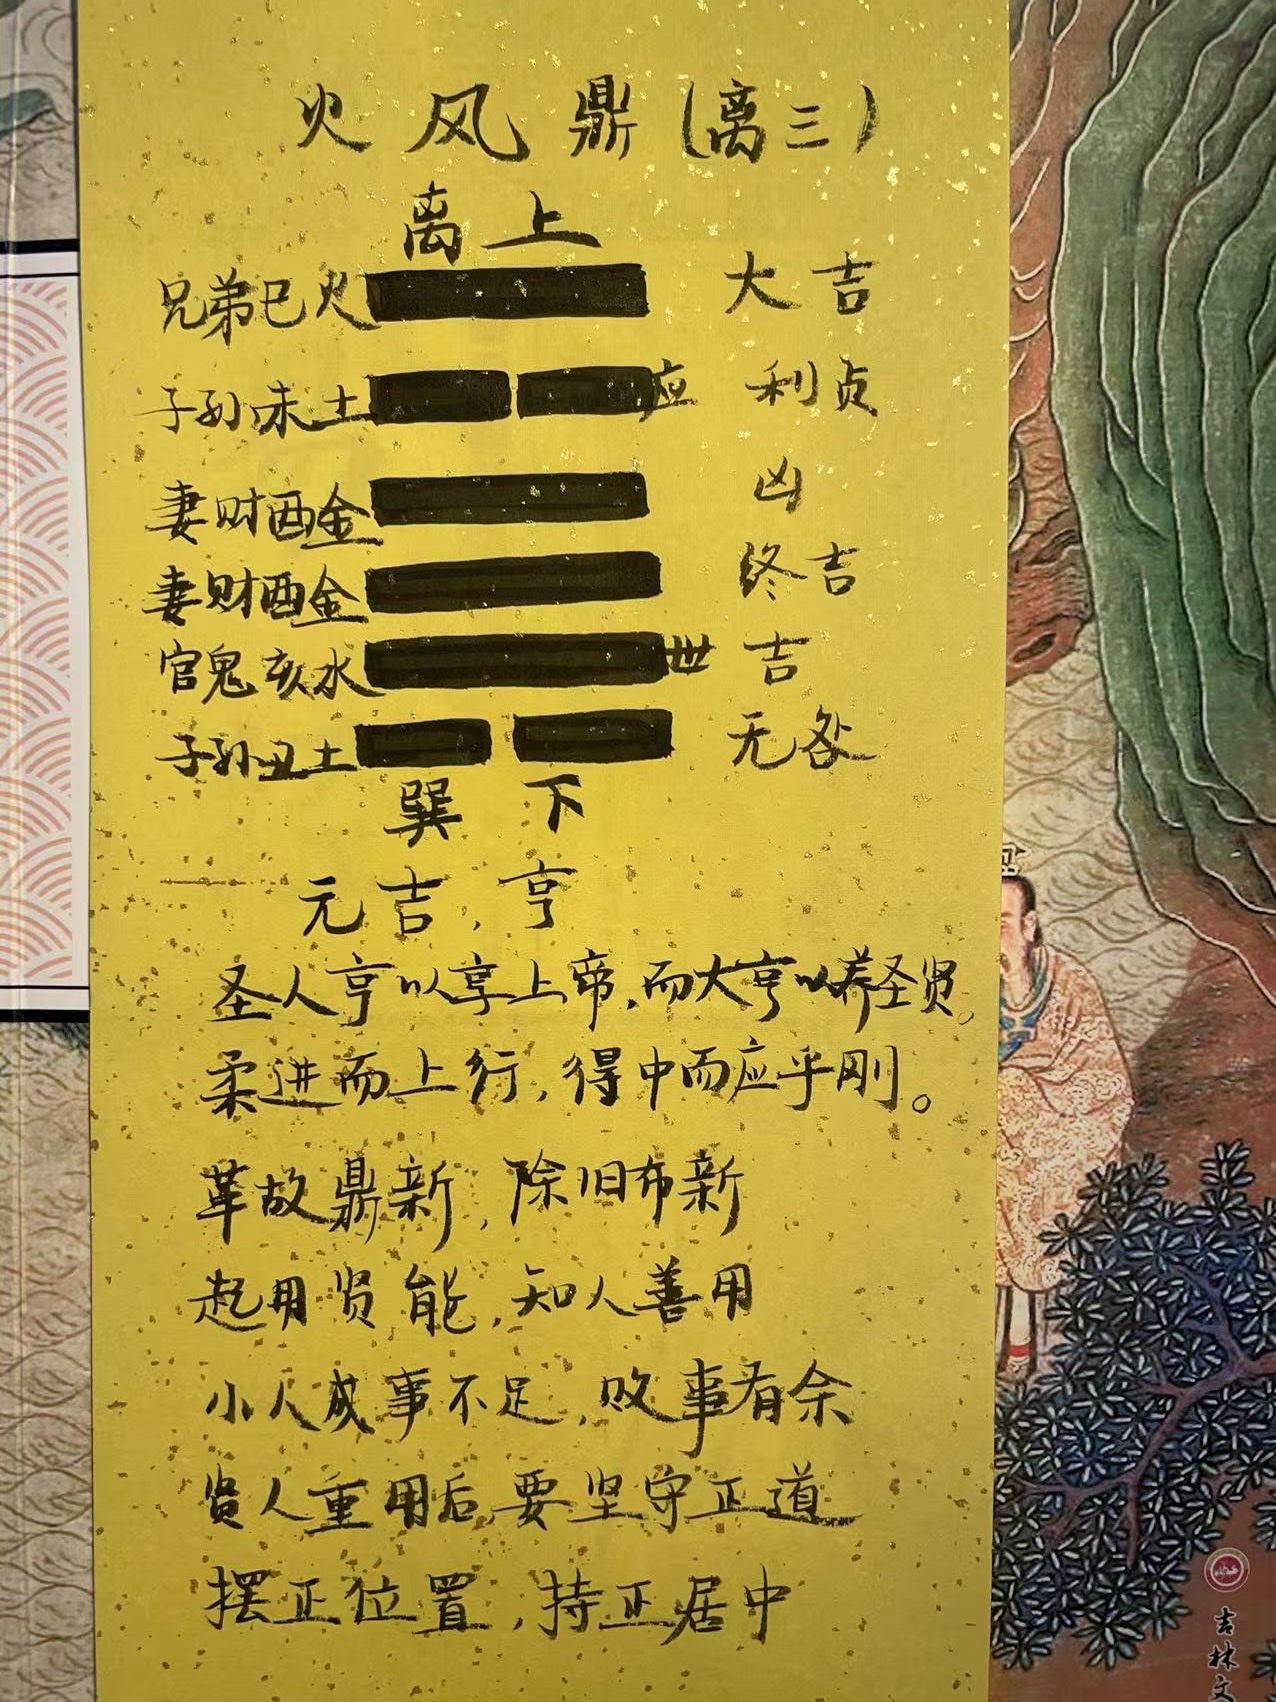 火风鼎(离三)
离上
兄弟巳火 大吉
子孙未土 应 利贞
妻财酉金 凶
妻财酉金 终吉
官鬼亥水 世 吉
子孙丑土 无咎
巽下
元吉,亨
圣人亨以享上帝,而大亨以养圣贤。
柔进而上行,得中而应乎刚。
革故鼎新,除旧布新
起用贤能,知人善用
小人成事不足,败事有余
贤人重用后,要坚守正道
摆正位置,持正居中
吉林文